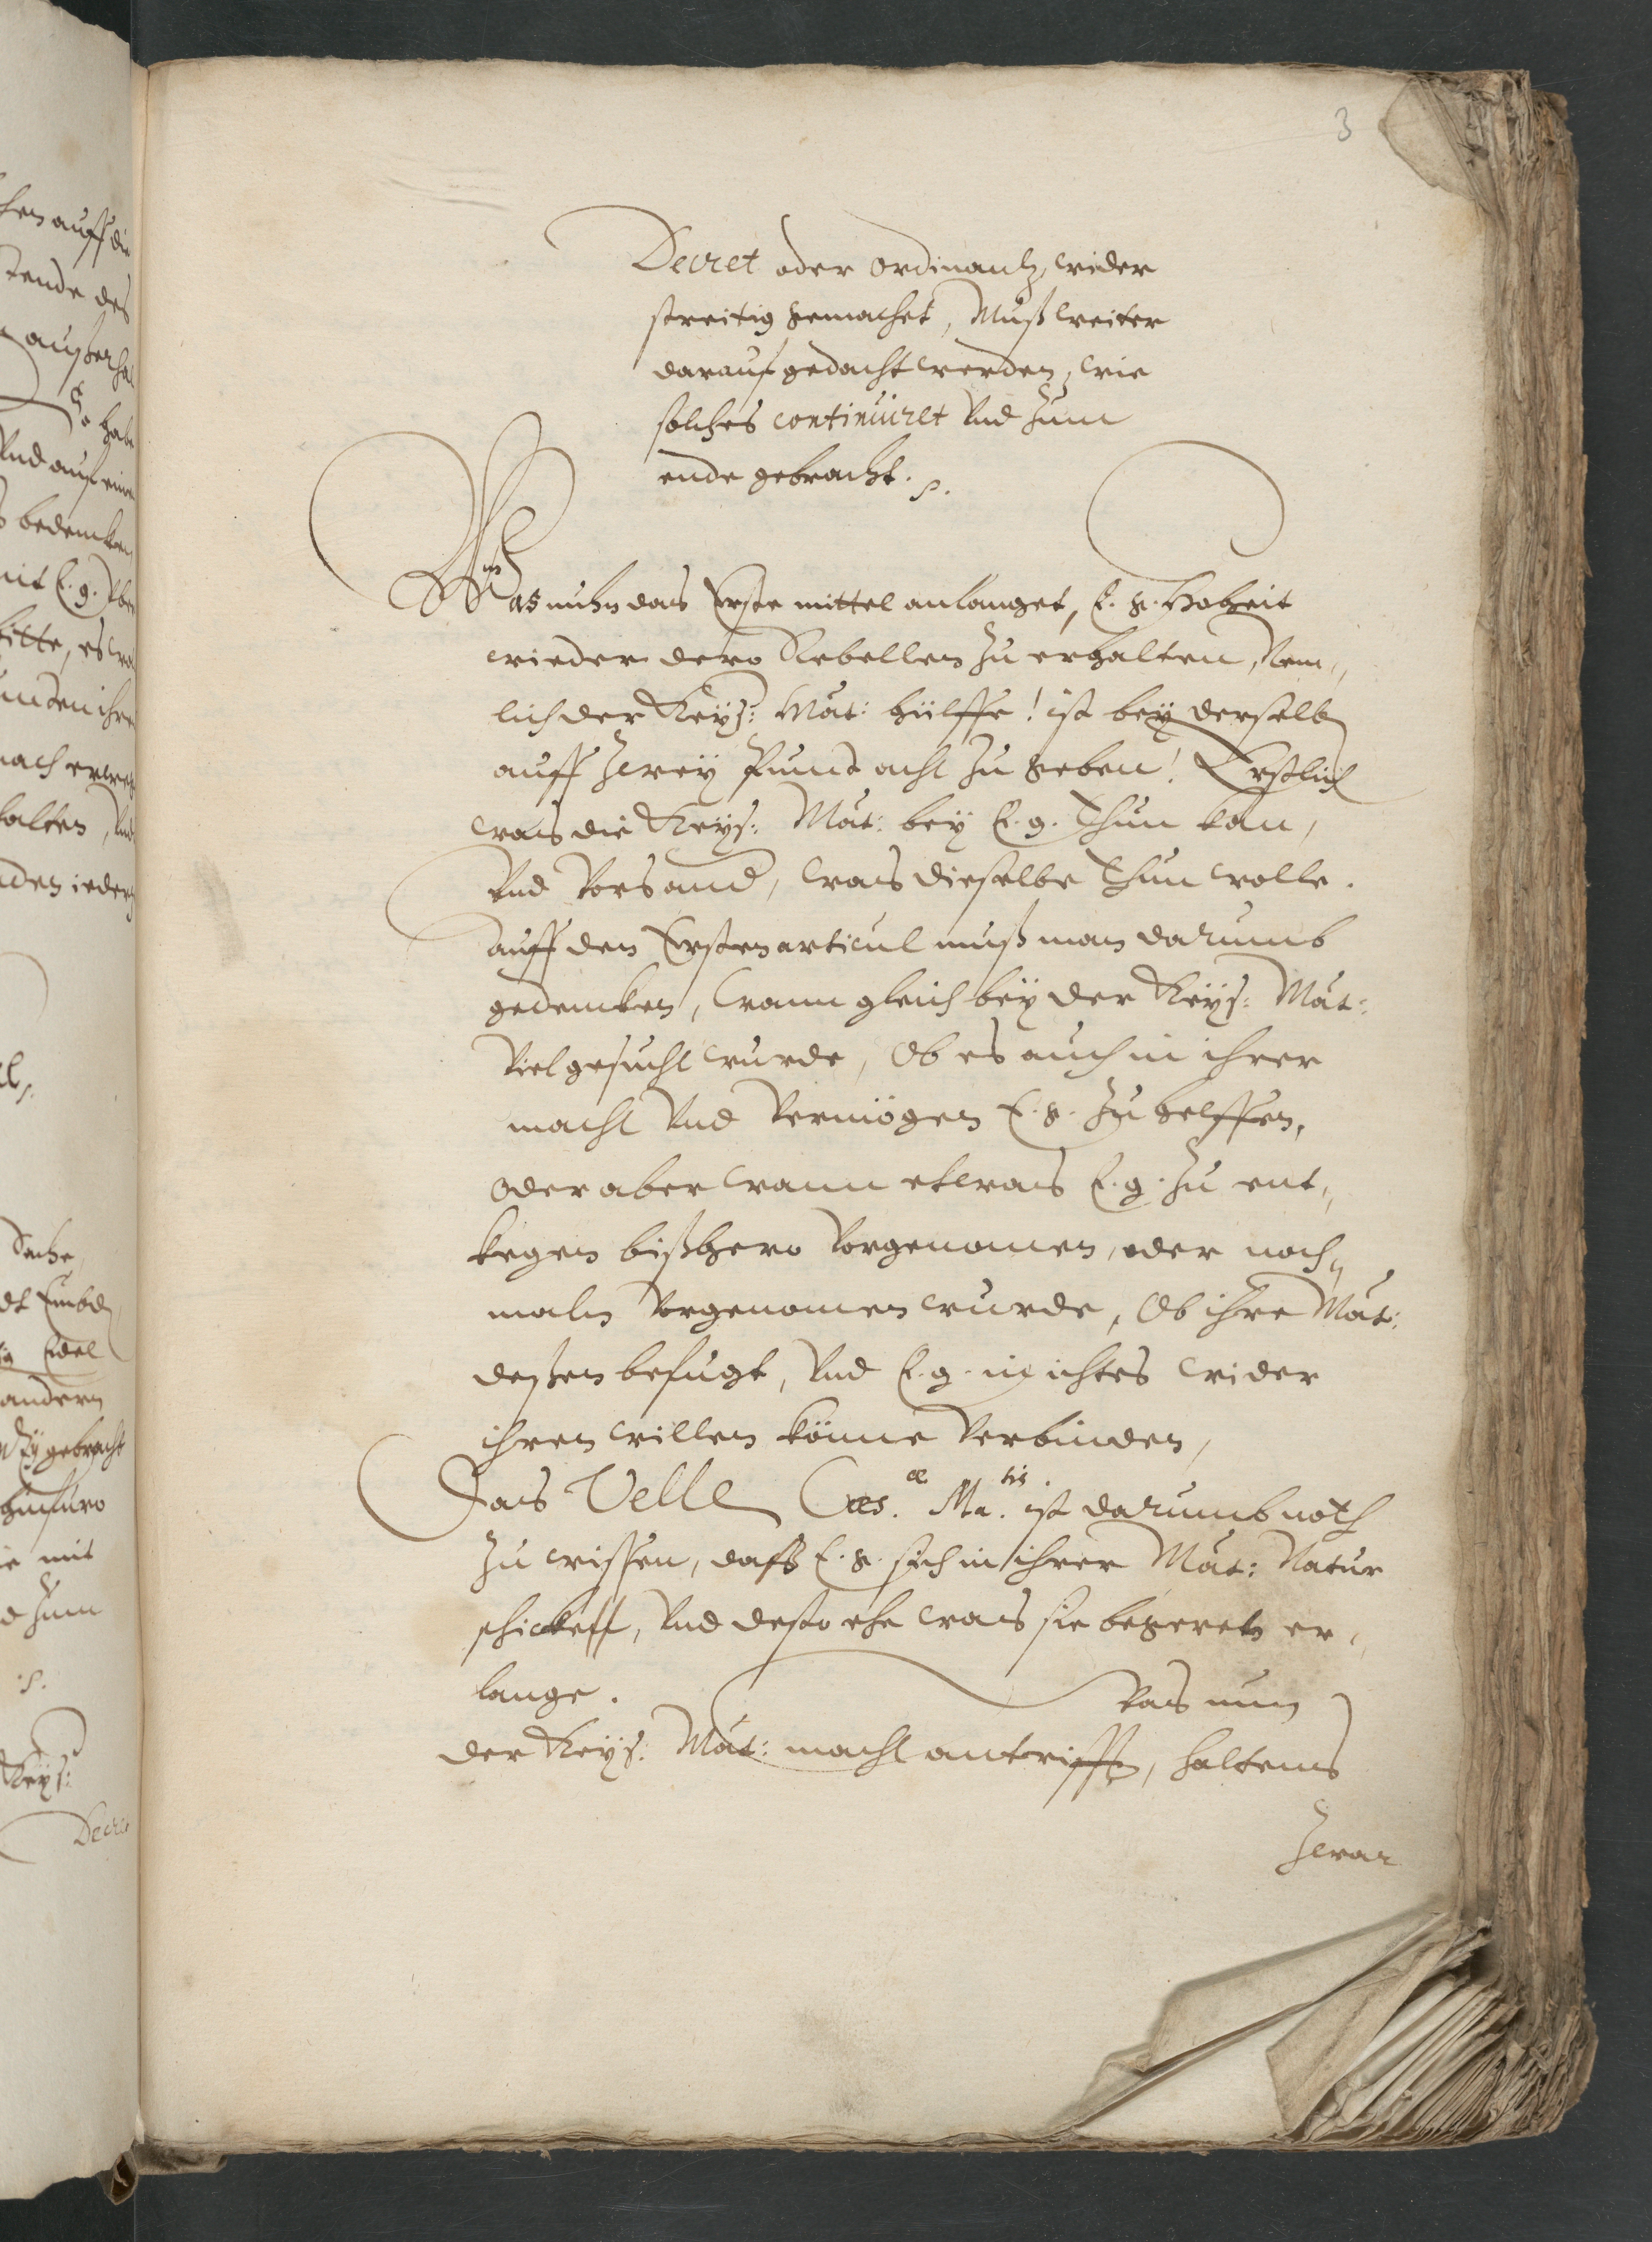 3
Decret oder ordinantz, wider
streitig gemachet, Muß weiter
darauf gedacht werden, wie
solches continuiret Vnd zum
ende gebracht. p.
Was nuhn das Erste mittel anlanget, E. g. Hoheit
wieder dero Rebellen zu erhalten, Nem„
lich der Keys: Mat: hülffe! ist bey derselben
auff zwey Punct acht zu geben! Erstlich
was die Keys: Mat: bey E. g. thun kan,
Vnd Vors and, was dieselbe thun wolle.
auff den Ersten articul muß man darumb
gedencken, wann gleich bey der Keys: Mat:
Viel gesucht wurde, Ob es auch in ihrer
macht Vnd Vermögen E. g. zu helffen,
oder aber wann etwas E. g. zu ent„
kegen bißhero Vorgenomen, oder noch„
maln Vorgenomen wurde, Ob ihre Mat:
deßen befugt, Vnd E. g. in ichtes wider
ihren willen könne Verbinden,
Das Velle Cæs.æ Ma.tis ist darumb noth
zu wissen, daß E. g. sich in ihrer Mat: Natur
schicken, Vnd desto ehe was sie begeren er„
lange. Was nun
der Keys: Mat: macht antrifft, haltens
zwar